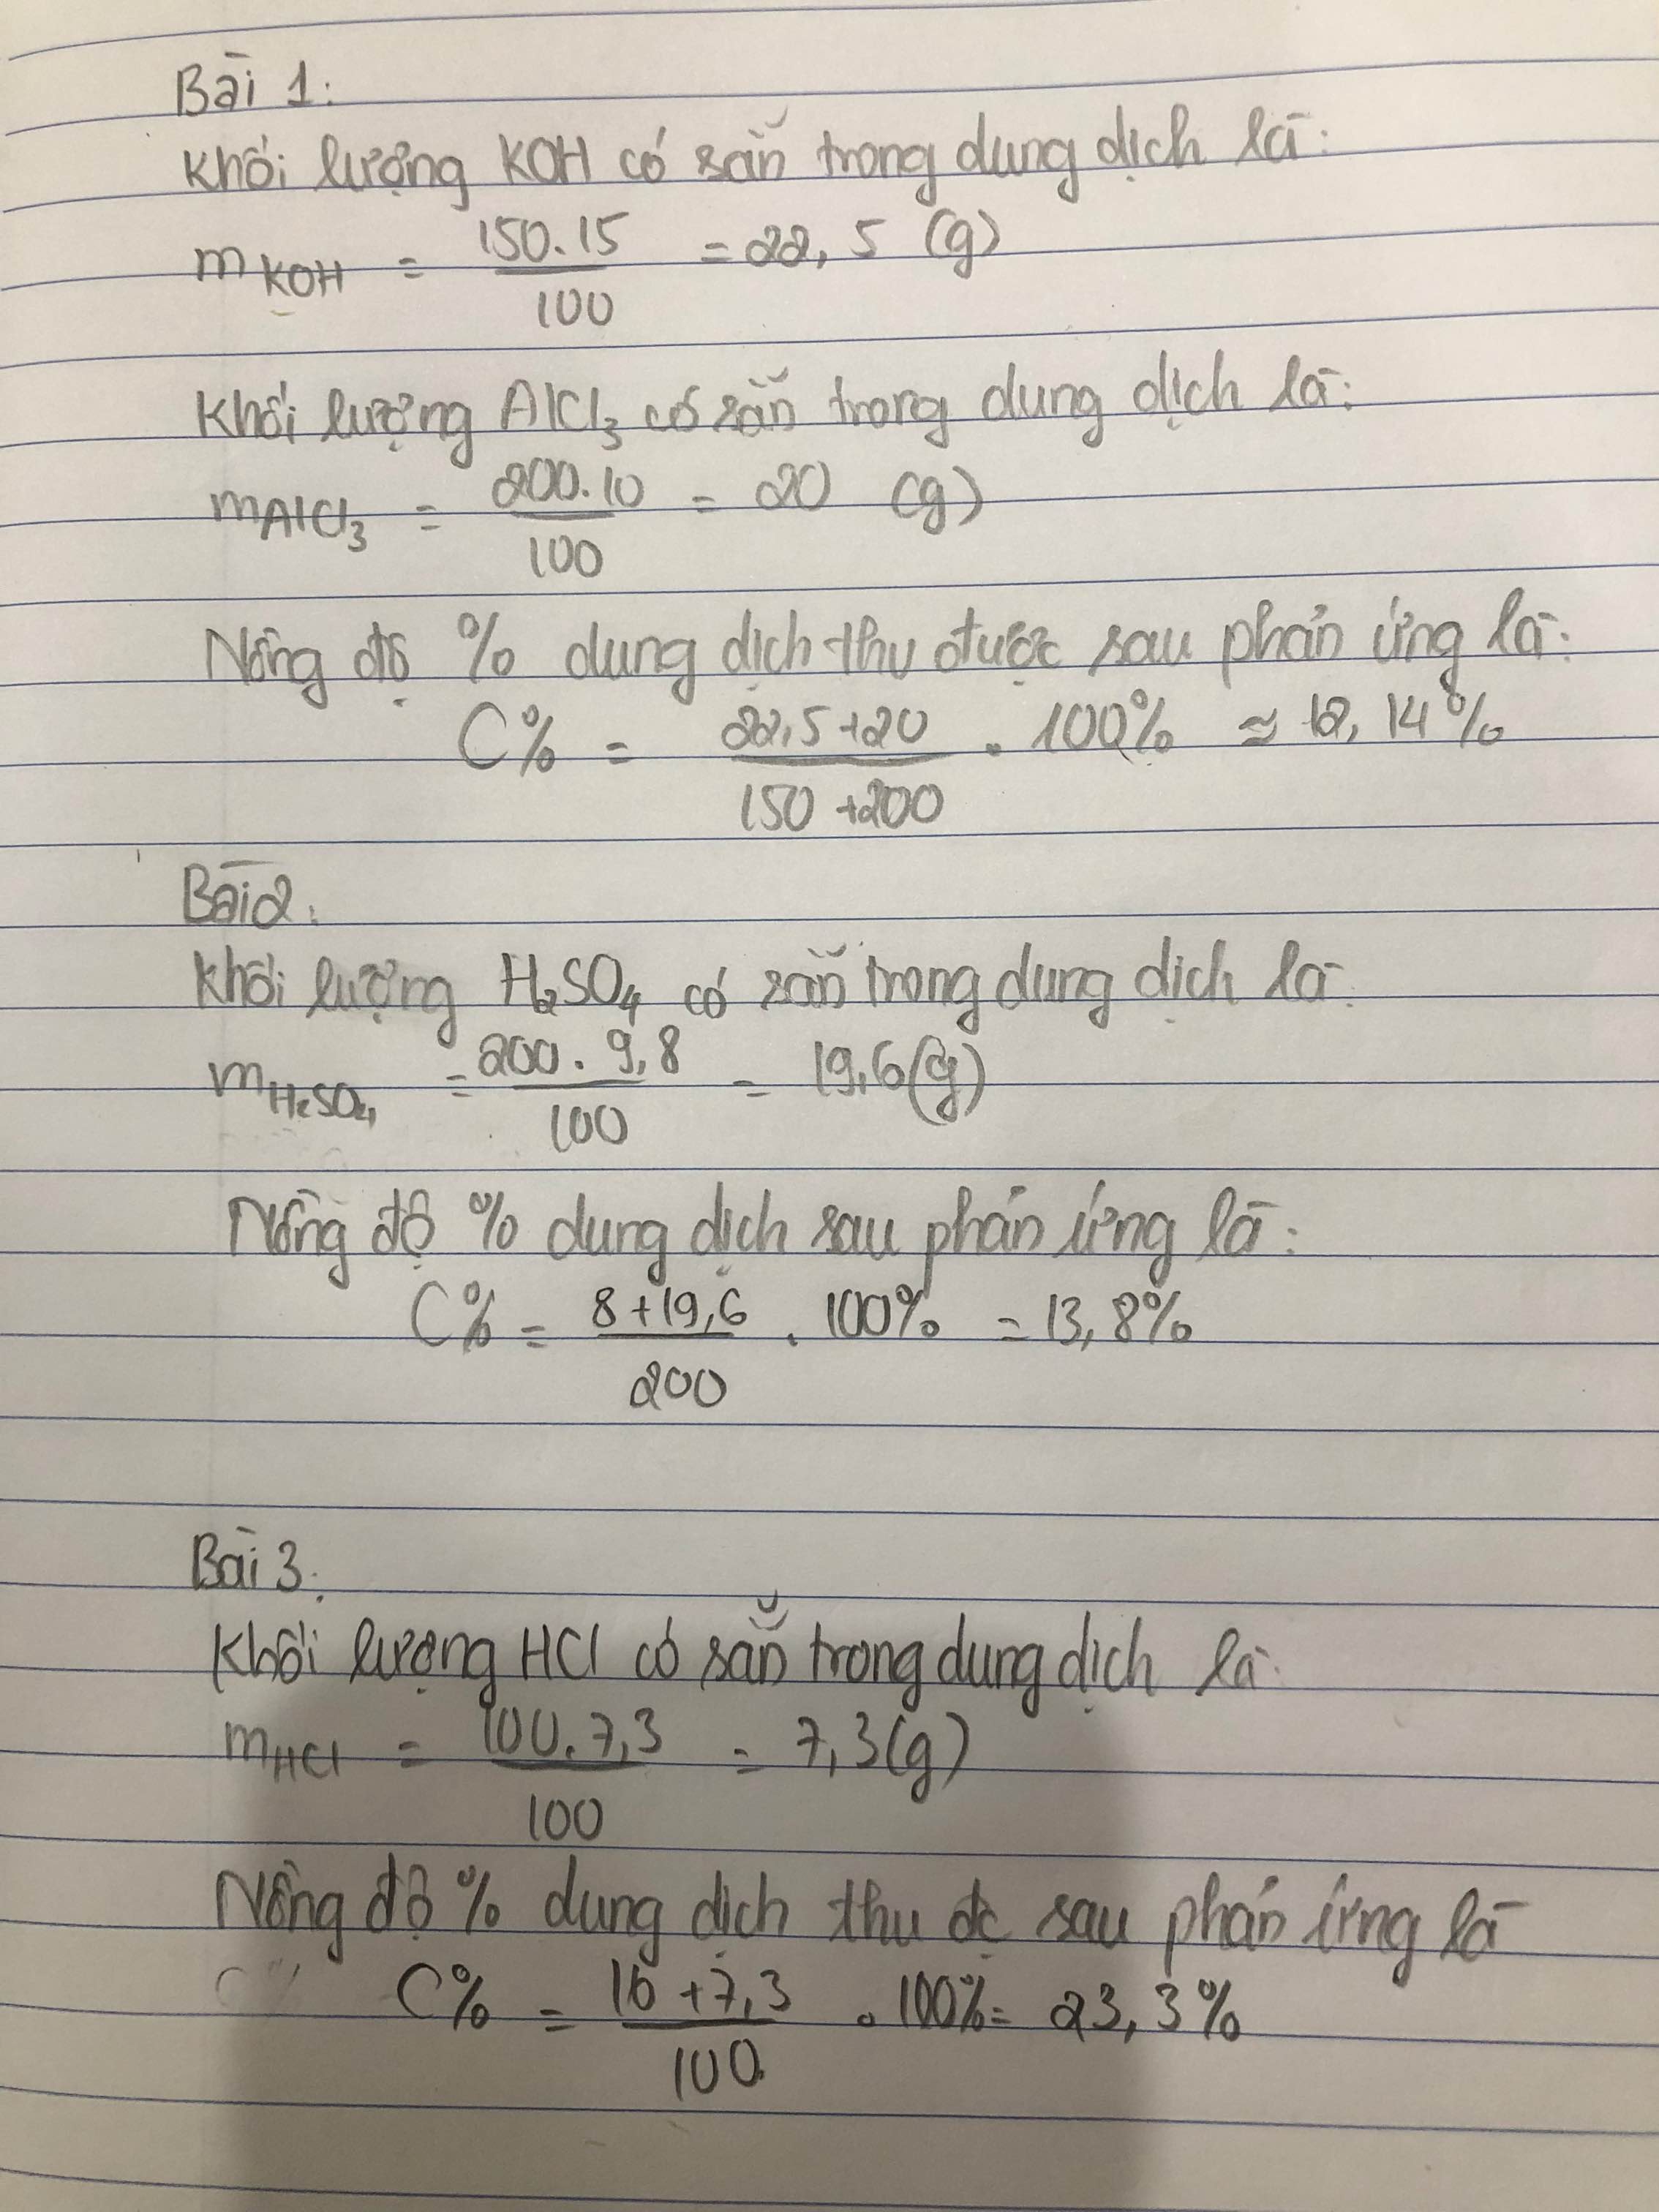 Bài 1:
Khối lượng KOH có sẵn trong dung dịch là:
m KOH = 150.15 / 100 = 22,5 (g)
Khối lượng AlCl3 có sẵn trong dung dịch là:
m AlCl3 = 200.10 / 100 = 20 (g)
Nồng độ % dung dịch thu được sau phản ứng là:
C% = 22,5+20 / 150+200 . 100% ≈ 12,14%
Bài 2:
Khối lượng H2SO4 có sẵn trong dung dịch là:
m H2SO4 = 200.9,8 / 100 = 19,6(g)
Nồng độ % dung dịch sau phản ứng là:
C% = 8+19,6 / 200 . 100% = 13,8%
Bài 3:
Khối lượng HCl có sẵn trong dung dịch là:
m HCl = 100.7,3 / 100 = 7,3(g)
Nồng độ % dung dịch thu đc sau phản ứng là
C% = 16+7,3 / 100 . 100% = 23,3%